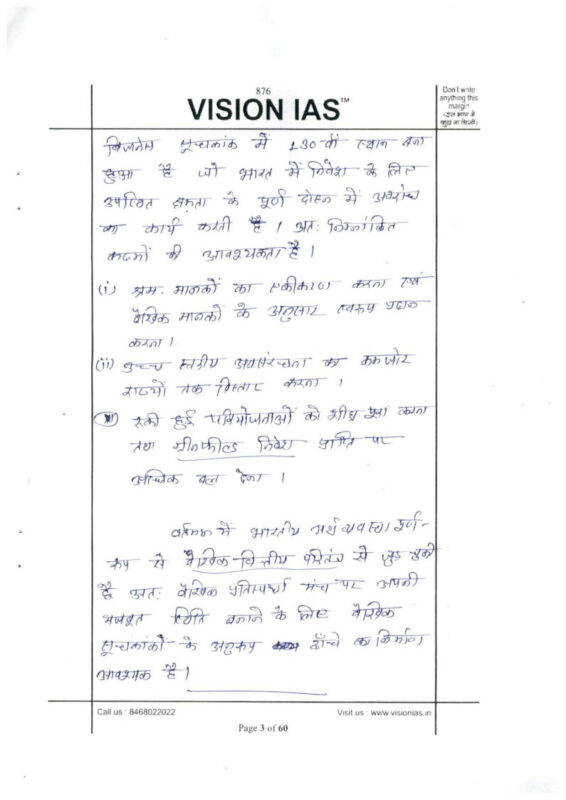 876
VISION IAS™
Don't write
anything this
margin
(इस भाग में
कुछ ना लिखें)
बिजनेस सूचकांक में 130 वां स्थान बना
हुआ है जो भारत में निवेश के लिए
उपस्थित क्षमता के पूर्ण दोहन में अवरोध
का कार्य करती है। अतः निम्नांकित
कदमों की आवश्यकता है।
(i) श्रम मानकों का एकीकरण करना एवं
वैश्विक मानकों के अनुसार स्वरूप प्रदान
करना।
(ii) उच्च स्तरीय अवसंरचना का कमजोर
राज्यों तक विस्तार करना।
(iii) रुकी हुई परियोजनाओं को शीघ्र पूरा करना
तथा ग्रीनफील्ड निवेश प्राप्ति पर
अधिक बल देना।
वर्तमान में भारतीय अर्थव्यवस्था पूर्ण-
रूप से वैश्विक वित्तीय परितंत्र से जुड़ चुकी
है अतः वैश्विक प्रतिस्पर्धा मंच पर अपनी
मजबूत स्थिति बनाने के लिए वैश्विक
सूचकांकों के अनुरूप ढाँचे का निर्माण
आवश्यक है।
Call us : 8468022022
Visit us : www.visionias.in
Page 3 of 60